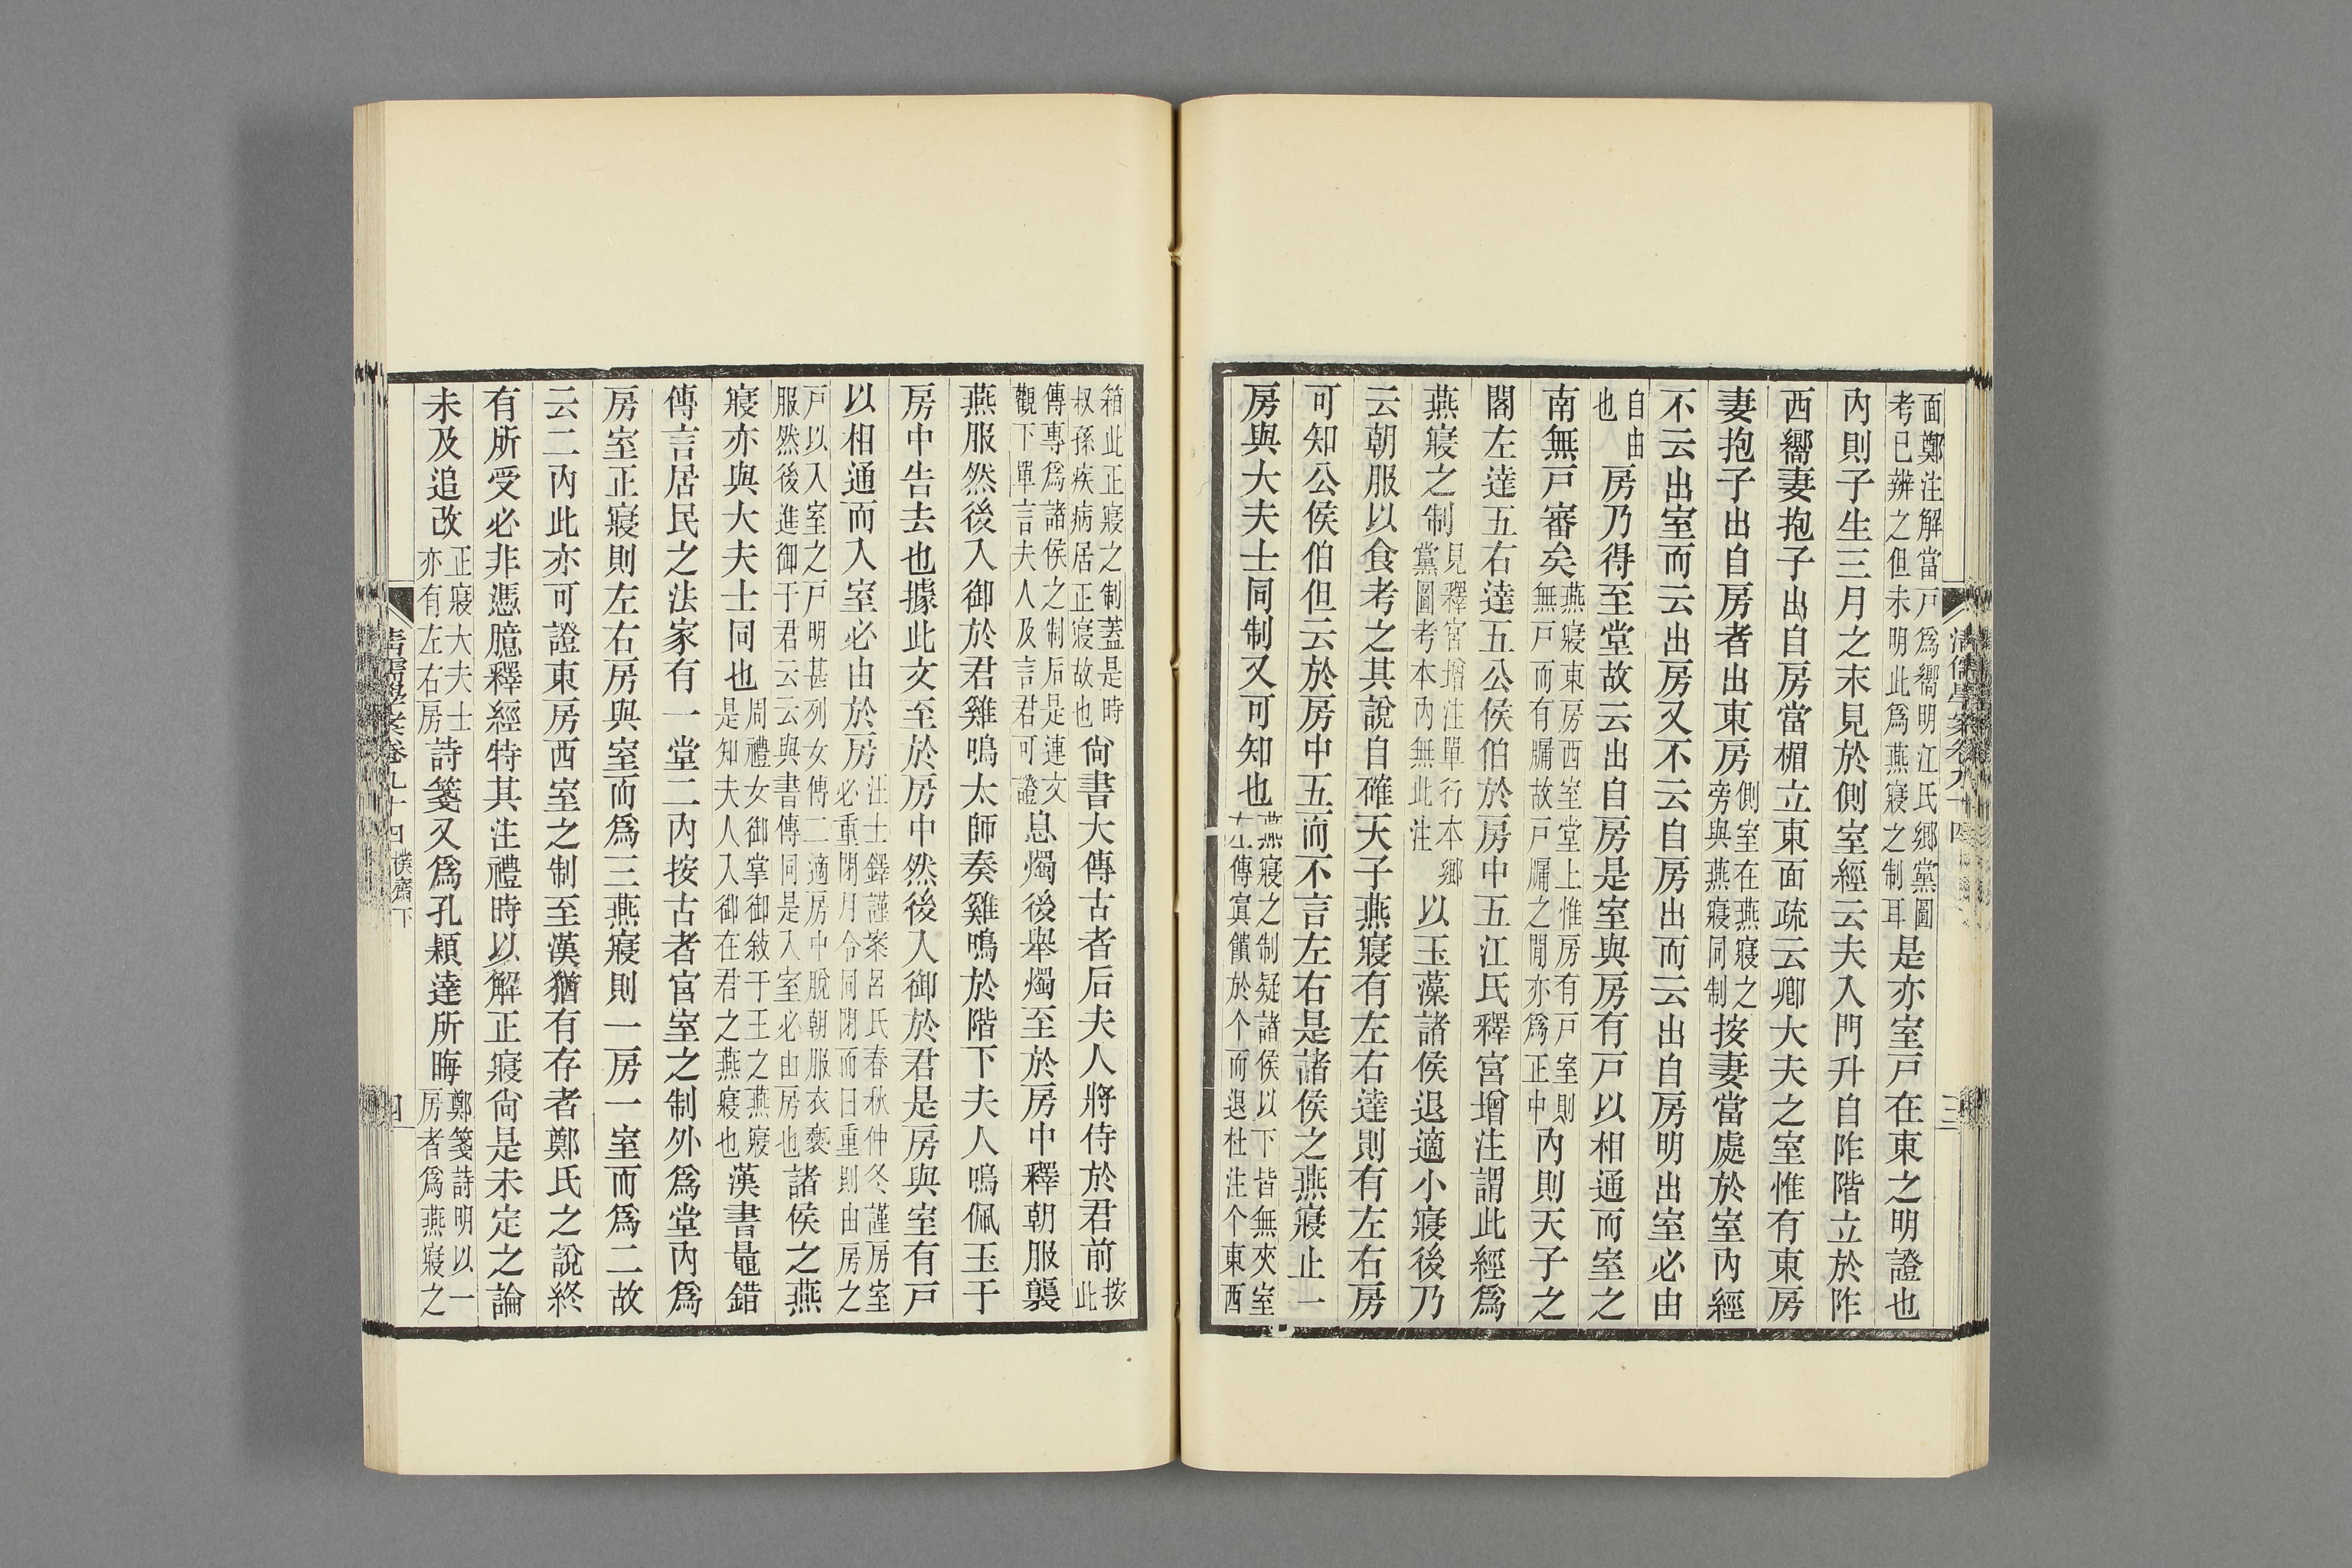 面鄭注解當戶爲嚮明江氏鄉黨圖
考已辨之但未明此爲燕寢之制耳是亦室戶在東之明證也
內則子生三月之末見於側室經云夫入門升自阼階立於阼
西嚮妻抱子出自房當楣立東面疏云卿大夫之室惟有東房
妻抱子出自房者出東房側室在燕寢之旁與燕寢同制按妻當處於室內經
不云出室而云出房又不云自房出而云出自房明出室必由
自由也房乃得至堂故云出自房是室與房有戶以相通而室之
南無戶審矣燕寢東房西室堂上惟房有戶室則無戶而有牖故戶牖之閒亦爲正中內則天子之
閣左達五右達五公侯伯於房中五江氏釋宮增注謂此經爲
燕寢之制見釋宮增注單行本鄉黨圖考本內無此注以玉藻諸侯退適小寢後乃
云朝服以食考之其說自確天子燕寢有左右達則有左右房
可知公侯伯但云於房中五而不言左右是諸侯之燕寢止一
房與大夫士同制又可知也燕寢之制疑諸侯以下皆無夾室左傳寘饋於个而退杜注个東西
清儒學案卷九十四
三
箱此正寢之制蓋是時叔孫疾病居正寢故也尙書大傳古者后夫人將侍於君前按此
傳專爲諸侯之制后是連文觀下單言夫人及言君可證息燭後舉燭至於房中釋朝服襲
燕服然後入御於君雞鳴太師奏雞鳴於階下夫人鳴佩玉于
房中告去也據此文至於房中然後入御於君是房與室有戶
以相通而入室必由於房汪士鐸謹案呂氏春秋仲冬謹房室必重閉月令同閉而曰重則由房之
戶以入室之戶明甚列女傳二適房中脫朝服衣褻服然後進御于君云云與書傳同是入室必由房也諸侯之燕
寢亦與大夫士同也周禮女御掌御敍于王之燕寢是知夫人入御在君之燕寢也漢書鼂錯
傳言居民之法家有一堂二內按古者宮室之制外爲堂內爲
房室正寢則左右房與室而爲三燕寢則一房一室而爲二故
云二內此亦可證東房西室之制至漢猶有存者鄭氏之說終
有所受必非憑臆釋經特其注禮時以解正寢尙是未定之論
未及追改正寢大夫士亦有左右房詩箋又爲孔穎達所晦鄭箋詩明以一房者爲燕寢之
清儒學案卷九十四 樸齋下
四